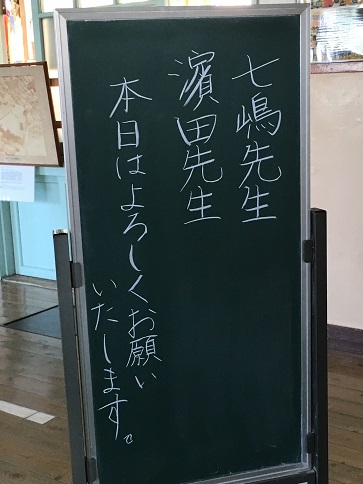 七嶋先生
濱田先生
本日はよろしくお願い
いたします。